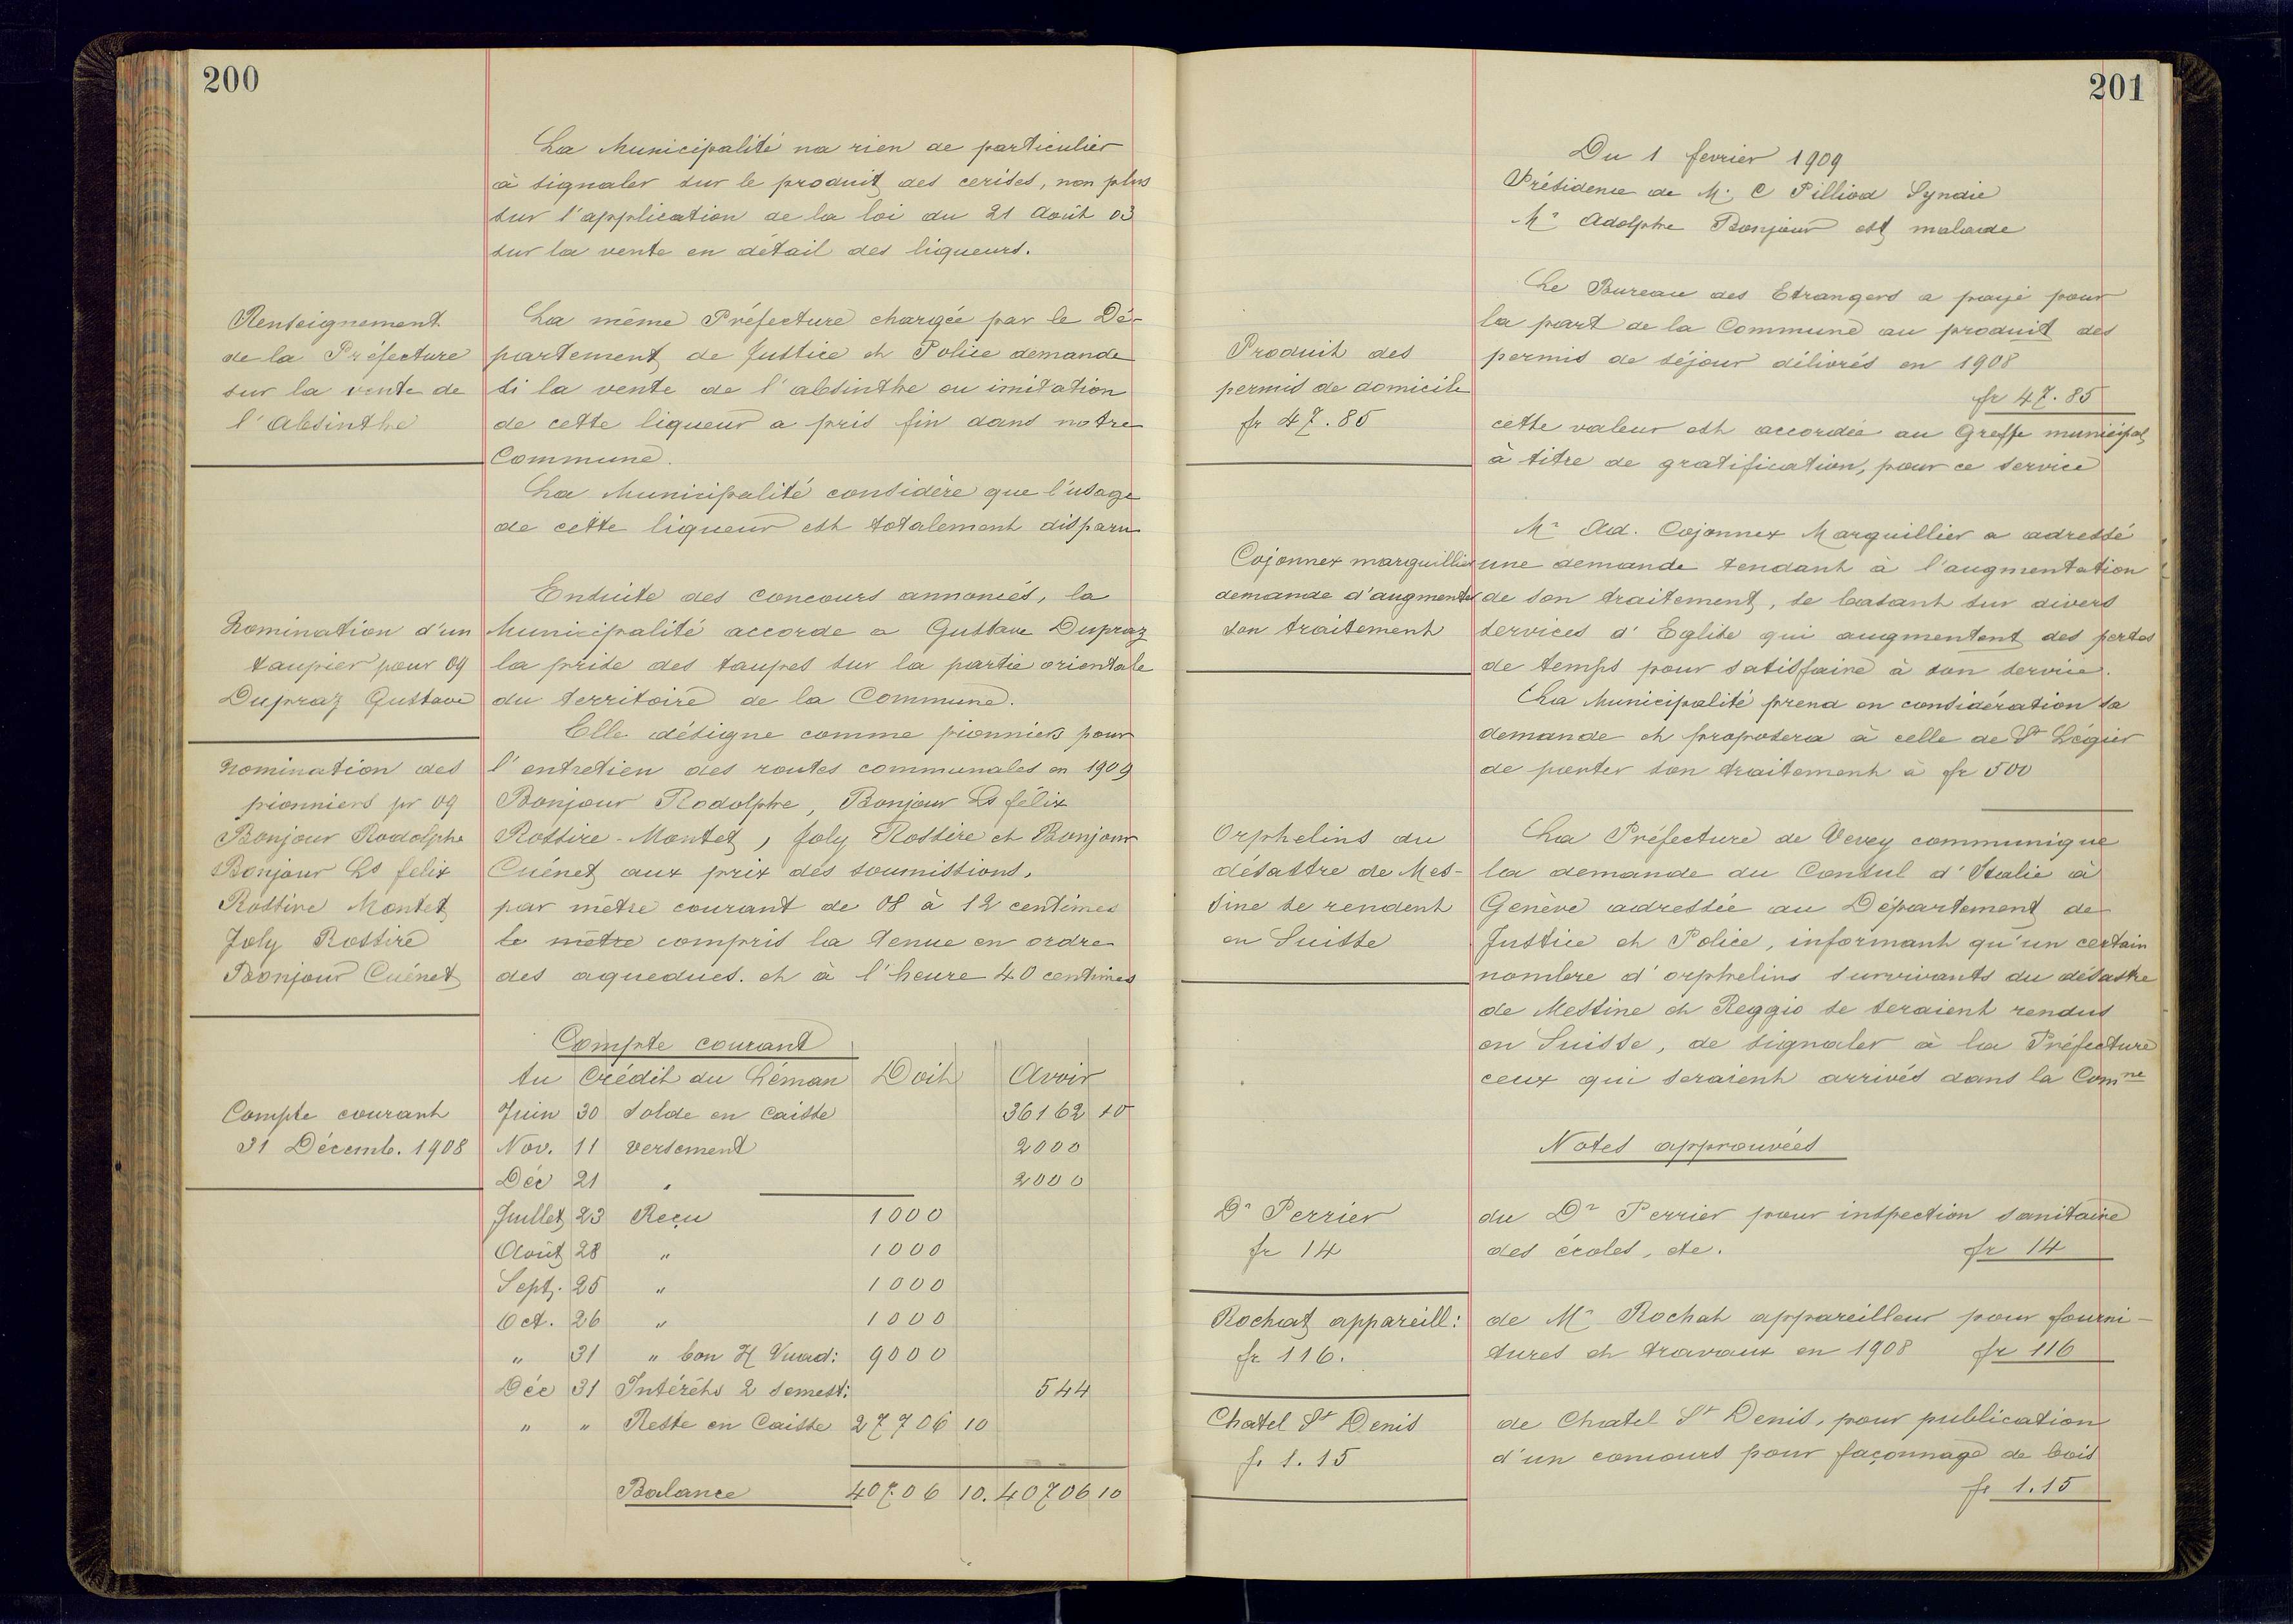 200
La Municipalité na rien de particulier
à signaler sur le produit des cerises, non plus
sur l'application de la loi du 21 Août 03
sur la vente en détail des liqueurs.
Renseignement
de la Préfecture
sur la vente de
l'Absinthe
La même Préfecture chargée par le Dé-
partement de Justice et Police demande
si la vente de l'absinthe ou imitation
de cette liqueur a pris fin dans notre
Commune.
La Municipalité considère que l'usage
de cette liqueur est totalement disparu
Nomination d'un
taupier pour 09
Dupraz Gustave
Ensuite des concours annoncés, la
Municipalité accorde a Gustave Dupraz
la prise des taupes sur la partie orientale
du territoire de la Commune.
Nomination des
pionniers pr 09
Bonjour Rodolphe
Bonjour Ls felix
Rossire Montet
Joly Rossire
Bonjour Cuénet
Elle désigne comme pionniers pour
l'entretien des routes communales en 1909
Bonjour Rodolphe, Bonjour Ls félix
Rossire-Montet, Joly Rossire et Bonjour
Cuénet aux prix des soumissions,
par mètre courant de 08 à 12 centimes
le mètre compris la tenue en ordre
des aqueducs. et à l'heure 40 centimes
Compte courant
31 Décemb. 1908
Compte courant
au Crédit du Léman Doit Avoir
Juin 30 Solde en Caisse 36162 10
Nov. 11 versement 2000
Déc 21 " 2000
Juillet 23 Reçu 1000
Août 28 " 1000
Sept. 25 " 1000
Oct. 26 " 1000
" 31 " bon H Vuad: 9000
Déc 31 Intérêts 2 semest: 544
" " Reste en Caisse 27706 10
Balance 40706 10. 40706 10
201
Du 1 fevrier 1909
Présidence de M. C Pilliod Syndic
Mr Adolphe Bonjour est malade
Produit des
permis de domicile
fr 47.85
Le Bureau des Etrangers a payé pour
la part de la Commune au produit des
permis de séjour délivrés en 1908
fr 47.85
cette valeur est accordée au Greffe municipal
à titre de gratification, pour ce service
Cojonnex marguillier
demande d'augmenter
son traitement
Mr Ad. Cojonnex Marguillier a adressé
une demande tendant à l'augmentation
de son traitement, se basant sur divers
services d'Eglise qui augmentent des pertes
de temps pour satisfaire à son service.
La Municipalité prend en considération sa
demande et proposera à celle de St Légier
de porter son traitement à fr 500
Orphelins du
désastre de Mes-
sine se rendent
en Suisse
La Préfecture de Vevey communique
la demande du Consul d'Italie à
Genève adressée au Département de
Justice et Police, informant qu'un certain
nombre d'orphelins survivants du désastre
de Messine et Reggio se seraient rendus
en Suisse, de signaler à la Préfecture
ceux qui seraient arrivés dans la Comne
Notes approuvées
Dr Perrier
fr 14
du Dr Perrier pour inspection sanitaire
des écoles, etc. fr 14
Rochat appareill:
fr 116.
de Mr Rochat appareilleur pour fourni-
tures et travaux en 1908 fr 116
Chatel St Denis
fr 1.15
de Chatel St Denis, pour publication
d'un concours pour façonnage de bois
fr 1.15